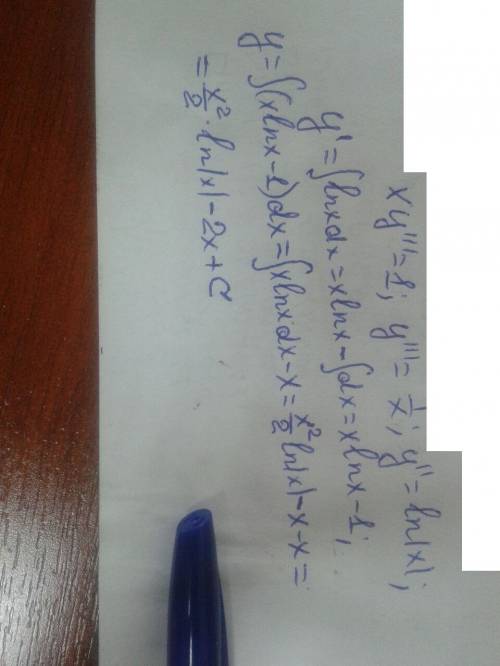 xy''' = 1; y''' = 1/x; y'' = ln|x|;
y' = ∫lnxdx = xlnx - ∫dx = xlnx - 1;
y = ∫(xlnx - 1)dx = ∫xlnxdx - x = x²/2 ln|x| - x - x =
= x²/2 · ln|x| - 2x + C